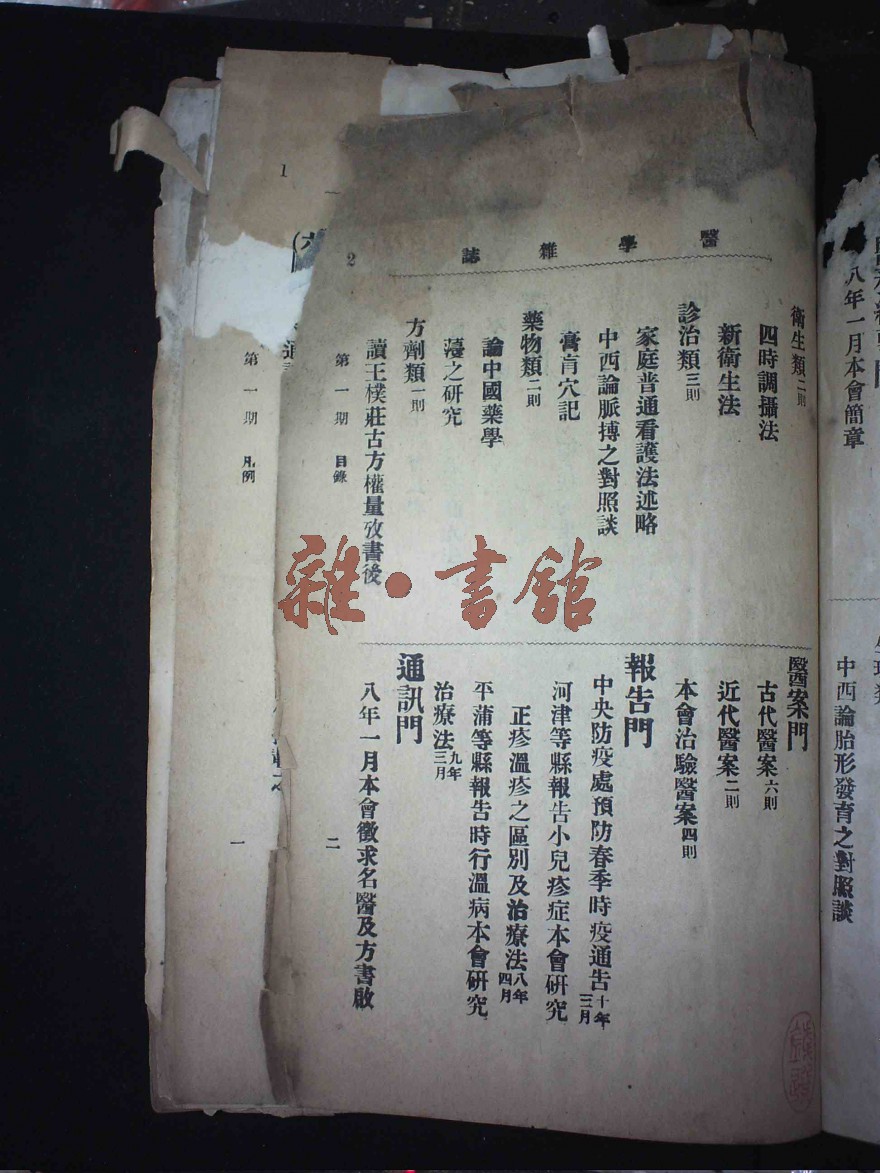 八年一月本會簡章
中西論胎形發育之對照談
醫學雜誌
2
衛生類二則
四時調攝法
新衛生法
診治類三則
家庭普通看護法述略
中西論脈搏之對照談
膏肓穴記
藥物類二則
論中國藥學
薓之研究
方劑類一則
讀王樸莊古方權量攷書後
第一期 目錄
醫案門
古代醫案六則
近代醫案二則
本會治驗醫案四則
報告門
中央防疫處預防春季時疫通告十年三月
河津等縣報告小兒疹症本會研究
正疹溫疹之區別及治療法八年四月
平蒲等縣報告時行溫病本會研究
治療法九年三月
通訊門
八年一月本會徵求名醫及方書啟
二
雜·書館
1
第一期 凡例
一